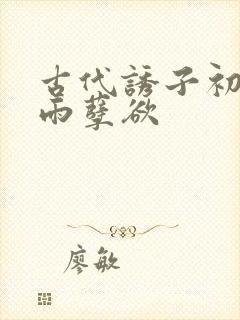 古代誘子初
雨孽欲
廖敏